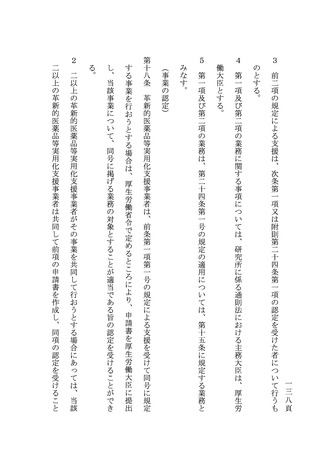 一三八頁
３　前二項の規定による支援は、次条第一項又は附則第二十四条第一項の認定を受けた者について行うも
のとする。
４　第一項及び第二項の業務に関する事項については、研究所に係る通則法における主務大臣は、厚生労
働大臣とする。
５　第一項及び第二項の業務は、第二十四条第一号の規定の適用については、第十五条に規定する業務と
みなす。
（事業の認定）
第十八条　革新的医薬品等実用化支援事業者は、前条第一項第一号の規定による支援を受けて同号に規定
する事業を行おうとする場合は、厚生労働省令で定めるところにより、申請書を厚生労働大臣に提出
し、当該事業について、同号に掲げる業務の対象とすることが適当である旨の認定を受けることができ
る。
２　二以上の革新的医薬品等実用化支援事業者がその事業を共同して行おうとする場合にあっては、当該
二以上の革新的医薬品等実用化支援事業者は共同して前項の申請書を作成し、同項の認定を受けること